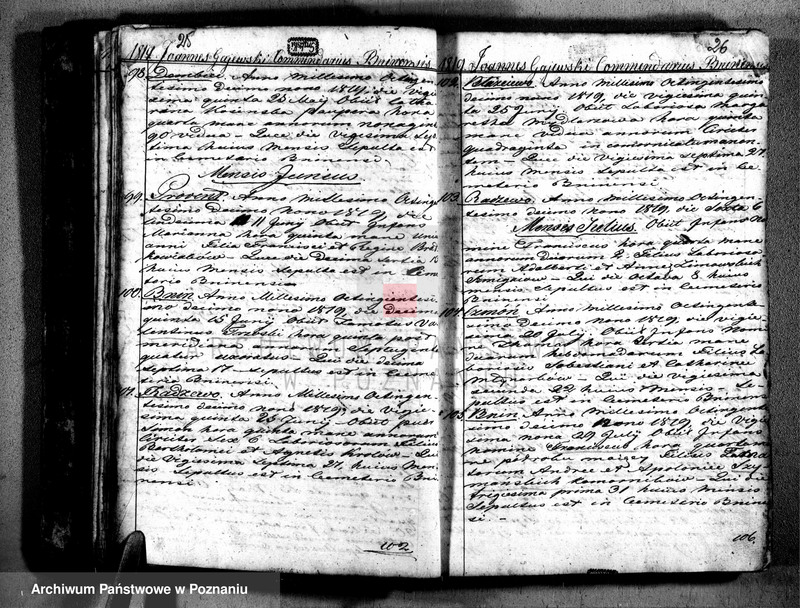 1819 25 Joannes Gajewski Commendarius Bninensis
98. Dembiec. Anno Millesimo Octingen
tesimo decimo nono 1819, die Vige
sima quinta 25 Maij Obiit Catha
rina pauper hora
quarta mane annorum nonagin
ta vidua – Quae die Vigesima Sep
tima huius Mensis Sepulta est
in Cemeterio Bninensi.
Mensis Junius
99. Provent. Anno Millesimo Octingen
tesimo Decimo Nono 1819, die
Undecima 11 Junij Obiit Infans
Marianna hora quinta mane unius
anni Filia Francisci et Regine
– Quae die Decima Tertia 13
huius Mensis Sepulta est in Ceme
terio Bninensi
100. Bnin Anno Millesimo Octingentesi
mo decimo nono 1819, die Decima
quinta 15 Junij Obiit Famatus Va
lentinus hora quarta post
meridiem annorum Septuaginta
quatuor uxoratus – Qui die decima
Septima 17 – Sepultus est in Ceme
terio Bninensi.
101. Radzewo. Anno Millesimo Octingen
tesimo decimo nono 1819, die Vige
sima quinta 25 Junij – Obiit puer
Simon hora quinta mane annorum
Circiter Sex 6 Laboriosorum Filius
Bartholomei et Agnetis – Qui
die Vigesima Septima 27 huius Men
sis Sepultus est in Cemeterio Bni
nensi
102
26
1819 Joannes Gajewski Commendarius Bninensis
102. Anno Millesimo Octingentesimo
decimo nono 1819, die vigesima quin
ta 25 Junij Obiit Laboriosa Marga
retha hora quinta
mane Vidua annorum Circiter
quadraginta in
– Quae die Vigesima Septima 27
huius Mensis Sepulta est in Ce
meterio Bninensi
103. Radzewo Anno Millesimo Octingen
tesimo decimo nono 1819, die Sexta 6
Menses Julius Obiit Infans No
mine Franciscus hora quarta mane
annorum Duorum 2 Filius Laborioso
rum Adalberti et Anna
– Qui die Octava 8 huius
Mensis Sepultus est in Cemeterio
Bninensi
104. Anno Millesimo Octingente
simo Decimo nono 1819, die vigesi
ma 20 Julij Obiit Infans Nomi
ne hora tertia mane
duarum hebdomadarum Filius La
Sebastiani et Catharina
– Qui die vigesima
22 huius Mensis – Se
pultus est in Cemeterio Bninensi
105. Bnin Anno Millesimo Octingente
simo decimo nono 1819, die Vige
sima nona 29 Julij Obiit Infans
nomine Franciscus hora quarta ma
ne Filius
Andrea et Apolonia Szy
mańskich – Qui die
trigesima prima 31 huius Mensis
Sepultus est in Cemeterio Bninen
si. –
106
Archiwum Państwowe w Poznaniu
ARCHIWUM PAŃSTWOWE
W POZNANIU